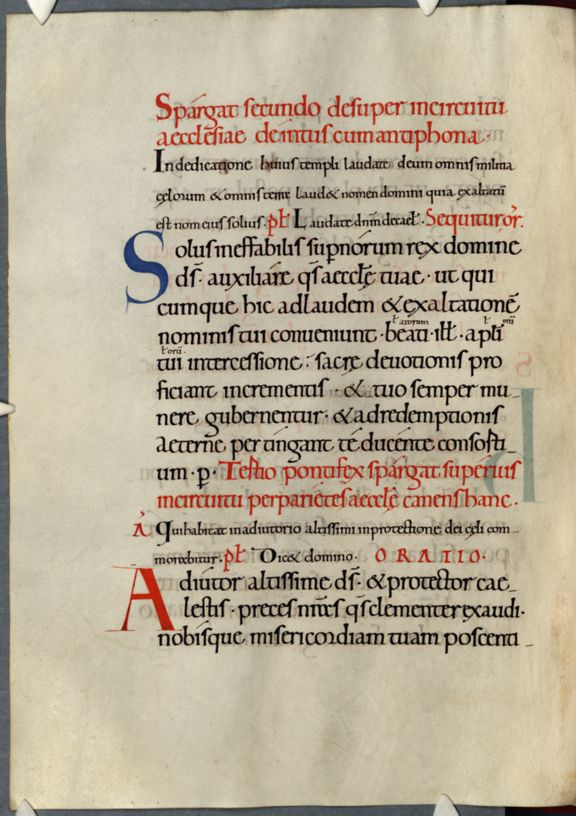 Spargat secundo desuper incircuitu
aecclesiae deintus cum antiphona.
In dedicatione huius templi laudate deum omnis militia
cęlorum & omnis terra laud& nomen domini quia exaltatū
est nomen eius solius. ps̄ Laudate dn̄m decael̄. Sequitur or̄.
Solus ineffabilis sup̄norum rex domine
ds̄. auxiliare qs̄ aecclę tuae. ut qui
cumque hic ad laudem & exaltationē
ł atorum ł orū
nominis tui conueniunt. beati. ill̄. apłi
ł orū
tui intercessione: sacrę deuotionis pro
ficiant incrementis. & tuo semper mu-
nere gubernentur. & ad redemptionis
aeternę pertingant te ducente consorti-
um. p̄. Tertio pontifex spargat superius
in circuitu per parietes aecclę canens hanc.
A̅ Qui habitat in adiutorio altissimi in protectione dei cęli com-
morabitur. ps̄ Dic& domino. ORATIO.
Adiutor altissime ds̄. & protector cae-
lestis. preces nr̄as qs̄ clementer exaudi.
nobisque misericordiam tuam poscenti-